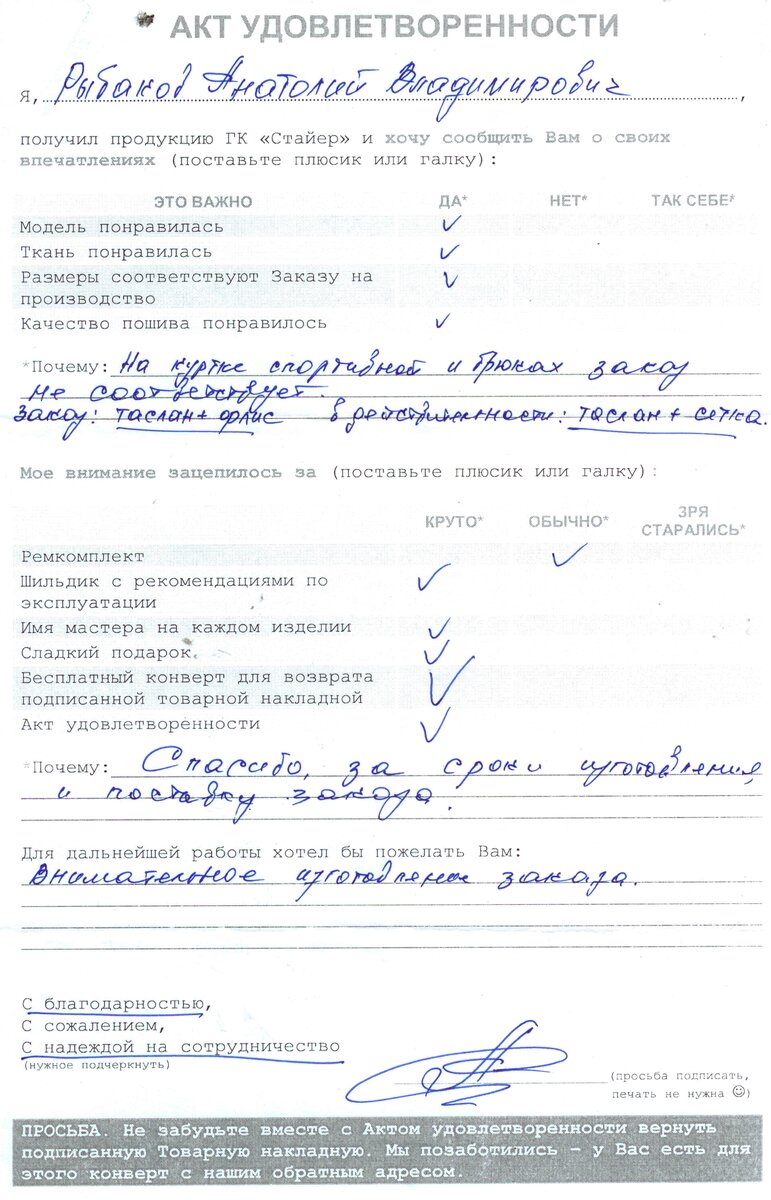 АКТ УДОВЛЕТВОРЕННОСТИ
Я, Рыбаков Анатолий Владимирович,
получил продукцию ГК «Стайер» и хочу сообщить Вам о своих
впечатлениях (поставьте плюсик или галку):
ЭТО ВАЖНО ДА* НЕТ* ТАК СЕБЕ*
Модель понравилась ✓
Ткань понравилась ✓
Размеры соответствуют Заказу на ✓
производство
Качество пошива понравилось ✓
*Почему: На куртке спортивной и брюках заказ
не соответствует.
Заказ: таслан + флис в действительности: таслан + сетка.
Мое внимание зацепилось за (поставьте плюсик или галку):
КРУТО* ОБЫЧНО* ЗРЯ
СТАРАЛИСЬ*
Ремкомплект ✓
Шильдик с рекомендациями по ✓
эксплуатации
Имя мастера на каждом изделии ✓
Сладкий подарок ✓
Бесплатный конверт для возврата ✓
подписанной товарной накладной
Акт удовлетворённости ✓
*Почему: Спасибо, за сроки изготовления
и поставку заказа.
Для дальнейшей работы хотел бы пожелать Вам:
Внимательное изготовление заказа.
С благодарностью,
С сожалением,
С надеждой на сотрудничество
(нужное подчеркнуть)
(просьба подписать,
печать не нужна ☺)
ПРОСЬБА. Не забудьте вместе с Актом удовлетворенности вернуть
подписанную Товарную накладную. Мы позаботились – у Вас есть для
этого конверт с нашим обратным адресом.